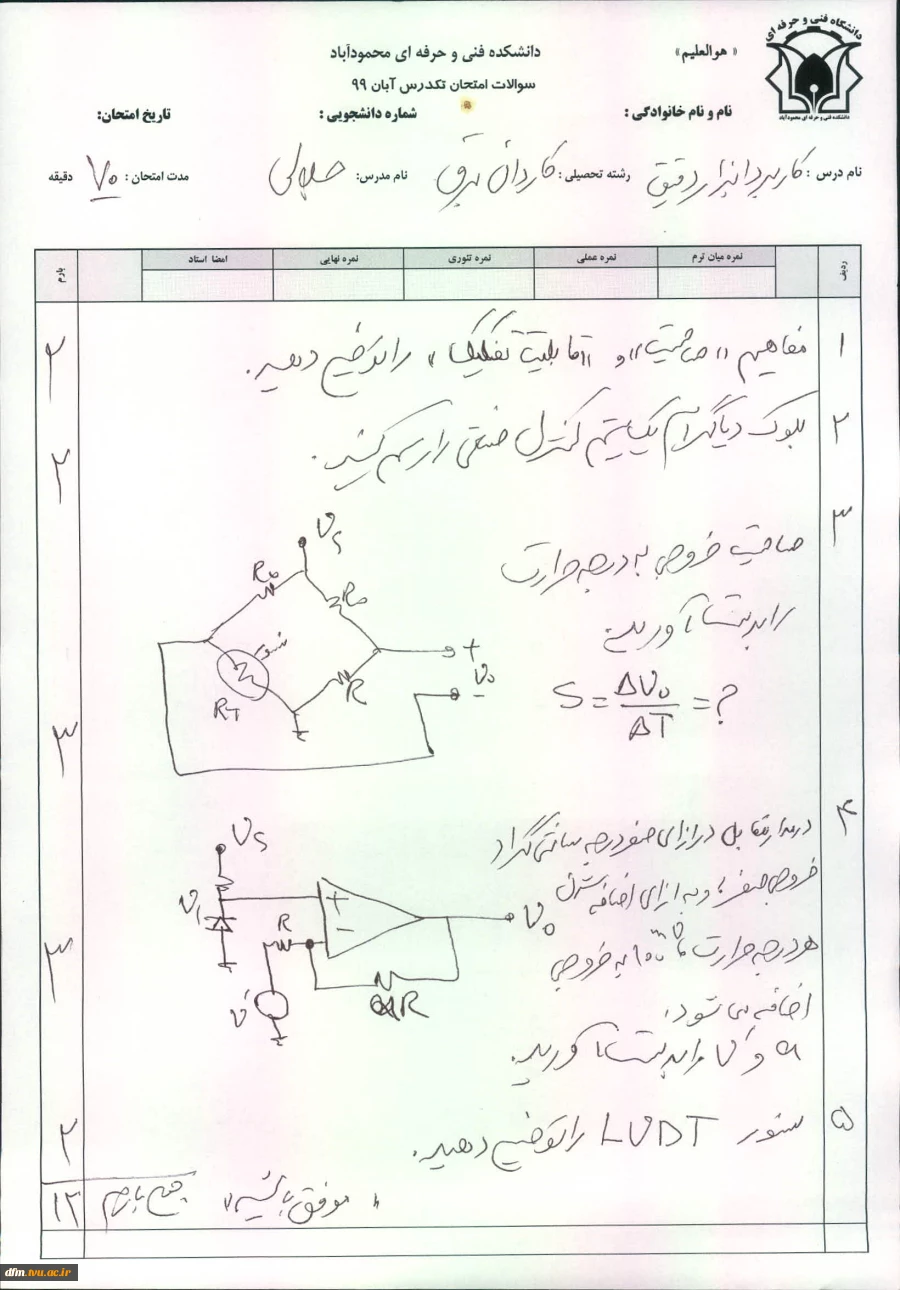 دانشگاه فنی و حرفه ای
دانشکده فنی و حرفه ای محمودآباد
« هوالعلیم»
دانشکده فنی و حرفه ای محمودآباد
سوالات امتحان تکدرس آبان ۹۹
نام و نام خانوادگی : شماره دانشجویی : تاریخ امتحان:
نام درس : کاربرد ابزار دقیق رشته تحصیلی : کاردانی برق نام مدرس: جلالی مدت امتحان : ۷۰ دقیقه
ردیف نمره میان ترم نمره عملی نمره تئوری نمره نهایی امضا استاد بارم
۱ مفاهیم «صاحیت» و «قابلیت تفکیک» را توضیح دهید. ۲
۲ بلوک دیاگرام یک سیستم کنترل صنعتی را رسم کنید. ۲
۳ خروجی به درجه حرارت
را بدست آورید.
S = ΔV₀/ΔT = ?
Vs
R₀ R₀
سنسور
R_T R
+ V₀ -
۳
۴ در مدار مقابل در ازای صفر درجه سانتی گراد
خروجی صفر و به ازای اضافه شدن
هر درجه حرارت ۱۰۰mv به خروجی
اضافه می شود.
a و V' را بدست آورید.
Vs
V₁
+
-
R
aR
V'
V₀
۳
۵ سنسور LVDT را توضیح دهید. ۲
«موفق باشید» جمع بارم ۱۲
dfm.tvu.ac.ir